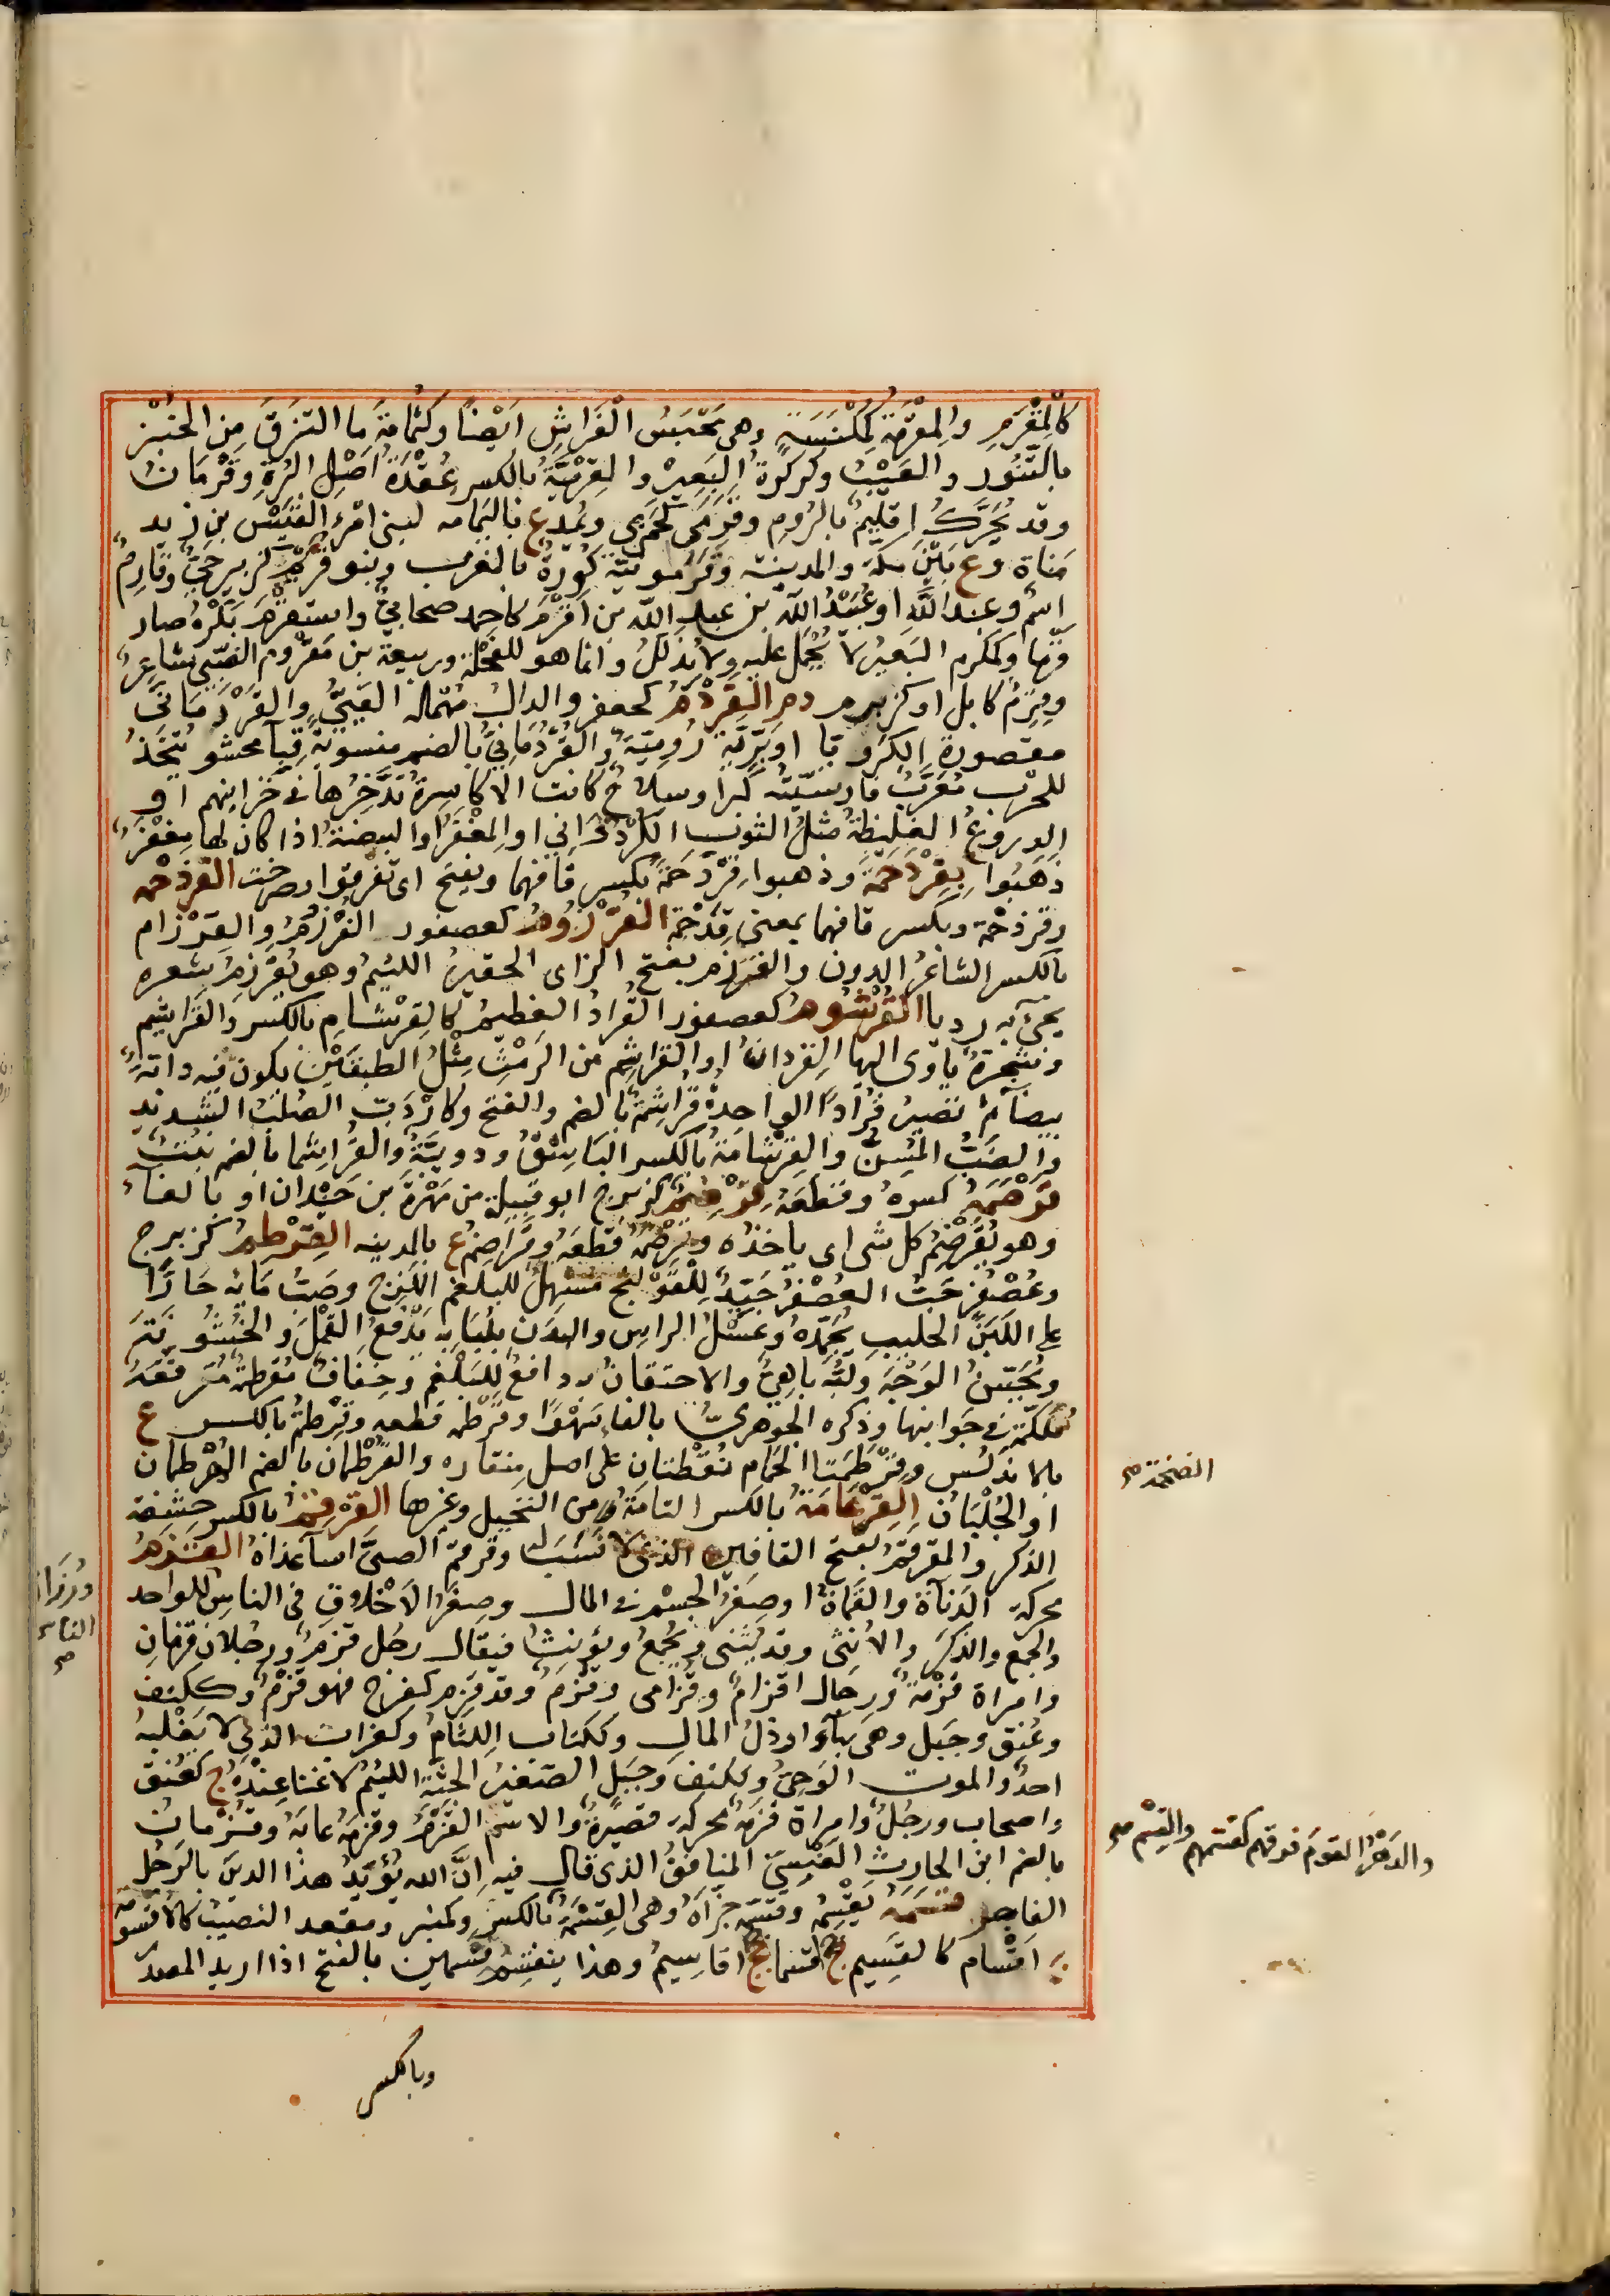 كالمِقْرَمِ والمِقْرَمَةُ كمِكْنَسَةٍ وهى مَحْبَسُ الفِرَاشِ ايضًا وكثُمامَةٍ ما التزقَ من الخُبْزِ
بالتَّنُّورِ والعَيْبُ وكركرةُ البَعِيرِ والقِرْمِيَّةُ بالكسر عُقْدَةُ اصْلِ البُرَةِ وقَرْمَانُ
وقد يُحَرَّكُ اقليمٌ بالرُومِ وقَرَمَى كجَمَزَى ويُمَدُّ ع باليَمامه لبنى امْرِئ القَيْسِ بن زيد
مَناةَ وع بَيْنَ مكة والمدينة وقَرَمونَةُ كُورَةٌ بالمغرب وبنو قُرَيْمٍ كزبير حَىٌّ وقارِمٌ
اسْمٌ وعبد اللّه او عُبَيْدُ اللّه بن عبد اللّه بن اقْرَمَ كاحمد صحابىٌّ واستقْرَمَ بَكْرُهُ صار
قَرْمًا وكمكرم البَعيرُ لا يُحْمَلُ عليه ولا يُذَلَّلُ وانما هو للفحْلَةِ وربيعة بن مَقْرُومٍ الضَّبِّىُّ شاعِرٌ
وقِرِمٌ كابل او كزبير د م القَرْدَمُ كجعفر والدالُ مُهْمَلَه العَيِىُّ والقَرْدَمَانَى
مقصورةً الكَرَوْيا او بَرِّيَّةٌ رُومِيَّةٌ والقُرْدُمانىُّ بالضم منسوبةً قِبَاءٌ محشوٌّ يُتّخَذُ
للحرْبِ مُعَرَّبٌ فارسيّتُهُ كبر او سلاحٌ كانت الاكاسِرةُ تدَّخِرُها فى خزاينهم او
الدروعُ الغليظةُ مثلُ الثوب الكُرْدُوانى او المِغْفَرُ او البيضةُ اذا كان لها مِغْفَرٌ
ذهَبُوا بِقِرْدَحْمَةٍ وذهبوا قِرْدَحْمَةً بكسر قافهما ويفتح اى تفرقوا وصرخت القرذحمه
وقرذحْمة وبكسر قافهما بمعنى قِدَّحْمةٍ القُرْزُومُ كعصفور القُرْزُمُ والقِرْزام
بالكسر الشاعرُ الدون والمقرزم بفتح الزاى الحقيرُ اللئيمُ وهو يُقَرْزِمُ شِعره
يجئُ به رديا القُرْشومُ كعصفور القُرادُ العظيمُ كالقِرْشامِ بالكسر والقراشِمِ
وشجرةٌ ياوى اليها القِردانُ او القراشِم من الرَّمْثِ مِثْلُ الطبقَيْنِ يكون فيه دابَّةٌ
بيضآءُ تصيرُ قُرادًا الواحِدةُ قُراشِمَةٌ بالضم والفتح وكارْدَبٍّ الصُلْبُ الشديد
والضبُّ المُسِنُّ والقِرْشَامَةُ بالكسر الباشِقُ ودويبَّةٌ والقُراشِمَا بالضم نبْتٌ
قَرْصَمَهُ كسرهُ وقطعَهُ قِرْضِمٌ كزبرج ابو قبيلةٍ من مَهْرَةَ بن حَيْدان او بالفاءِ
وهو يُقَرْضِمُ كل شى اى ياخذه وقَرْضَمَهُ قطعَهُ وقُراضِمُ ع بالمدينه القِرْطِمُ كزبرج
وعُصْفُرٍ حَبُّ العُصْفُرِ جَيِّدٌ لِلْقَوْلَنْجِ مُسْهِلٌ للبلغم اللّزِجِ وصَبُّ مَايِه حَارًّا
على اللَّبَنِ الحليبِ يُجَمِّدُهُ وغَسْلُ الراس والبدَنِ بلُبَابِه يَدْفَعُ القَمْلَ والخُشُونَتَ
ويُحَسِّنُ الوَجْهَ ولُبُّهُ باهِىٌّ والاحتقانُ به دافعٌ للبَلْغَمِ وخِفافٌ مُقَرْطَمَةٌ مُرَقَّعَةٌ
مُلَكَّمَةٌ فى جوانبها وذكره الجوهرىُّ بالفاءِ سَهْوًا وقَرْطَمه قطعه وقِرْطِمَةُ بالكسر ع
بالاندلُس وقِرْطِمَتا الحَمام نُقْطتانِ على اصل مِنقاره والقُرْطُمان بالضم الهُرْطُمان
او الجُلْبَان القِرْعَامَةُ بالكسر التامَّةُ من النخيل وغيرها القِرْقِمُ بالكسر حشَفة
الذكر والمقرقَمُ بفتح القافين الذى لا نَسَبَ له وقرقم الصبىَّ اساءَ غذاءَهُ القَزَمُ
محركة الدَّناءَة والقَماءَةُ او صِغَرُ الجسْمِ فى المال وصِغَرُ الاخْلاقِ فى الناس للواحد
والجمع والذكر والانثى وقد يُثَنَّى ويُجْمَعُ ويؤنثُ فيقال رجُل قَزَمٌ ورجُلان قزمانِ
وامراة قَزَمَةٌ ورجال اقزامٌ وقزامى وقُزُمٌ وقد قَزِمَ كفرح فهو قزْمٌ وككتف
وعُنق وجَبل وهى بهآءٍ ارذلُ المالِ وككتاب اللِئامُ وكغراب الذى لا يَغْلِبُه
احدٌ والموت الوَحِىُّ وككتف وجَبلٍ الصَغيرُ الجثّةِ اللئيمُ لا غَناءَ عِنْدَهُ ج كعُنق
واصحاب ورجُلٌ وامراة قزمَةٌ محركة قصيرةٌ والاسم القَزَمُ وقزمهُ عابَهُ وقُزْمانُ
بالضم ابن الحارث العَبْسِىُّ المنافقُ الذى قال فيه اِنَّ اللّه يُؤيّدُ هذا الدين بالرَّجُلِ
الفاجر قسَمَهُ يَقْسِمُهُ وقسّمَه جزَّاهُ وهى القِسْمَةُ بالكسر وكمنبر ومقعد النصيبُ كالاقسومة
ج اقْسام كالقسِيم ج اقسما جج اقاسِيمُ وهذا ينقسِمُ قسْمين بالفتح اذا اريد المصدر
وبالكسر
الضخمة صح
ورُذَالُ الناس صح
والدهْرُ القومَ فرقهم كقسّمهم والقِسْم صح